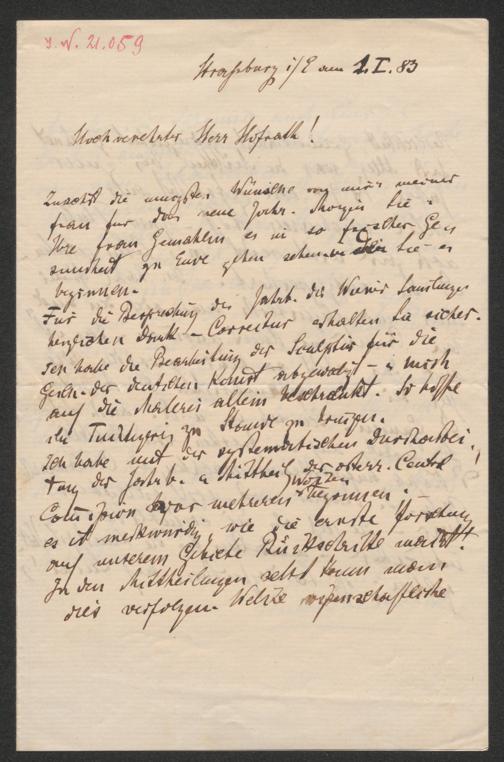 I. N. 21.059
Straßburg i/E am 2. I. 83
Hochverehrter Herr Hofrath!
Zunächst die innigsten Wünsche von mir u meiner
Frau für das neue Jahr. Mögen Sie u
Ihre Frau Gemahlin es in so frischer Gesundheit
zu Ende gehen sehen wie Sie es
beginnen.
Für die Besprechung des Jahrb. der Wiener Samlungen
herzlichen Dank – Correctur erhalten Sie sicher.
Ich habe die Bearbeitung der Sculptur für die
Gesch. der deutschen Kunst abgewälzt – u mich
auf die Malerei allein beschränkt. So hoffe
ich zu Stande zu bringen.
Ich habe mit der systematischen Durcharbei-
tung der Jahrb. u Mittheil. der österr. Central
Comission vor mehreren Wochen begonnen.
es ist merkwürdig, wie die ernste Forschung
auf unserem Gebiete Rückschritte macht!
In den Mittheilungen selbst kann man
dies verfolgen. Welche wissenschaftliche